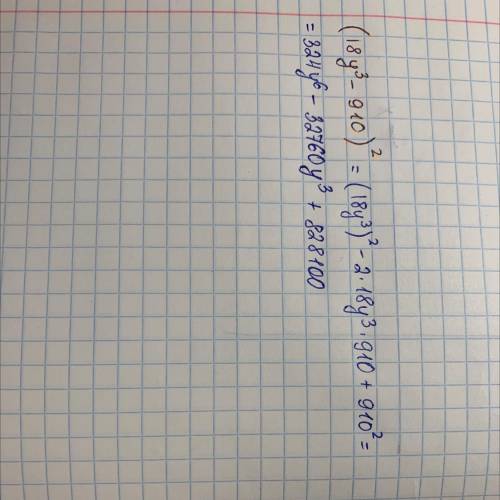 (18y³ - 910)² = (18y³)² - 2·18y³·910 + 910² =
= 324y⁶ - 32760y³ + 828100